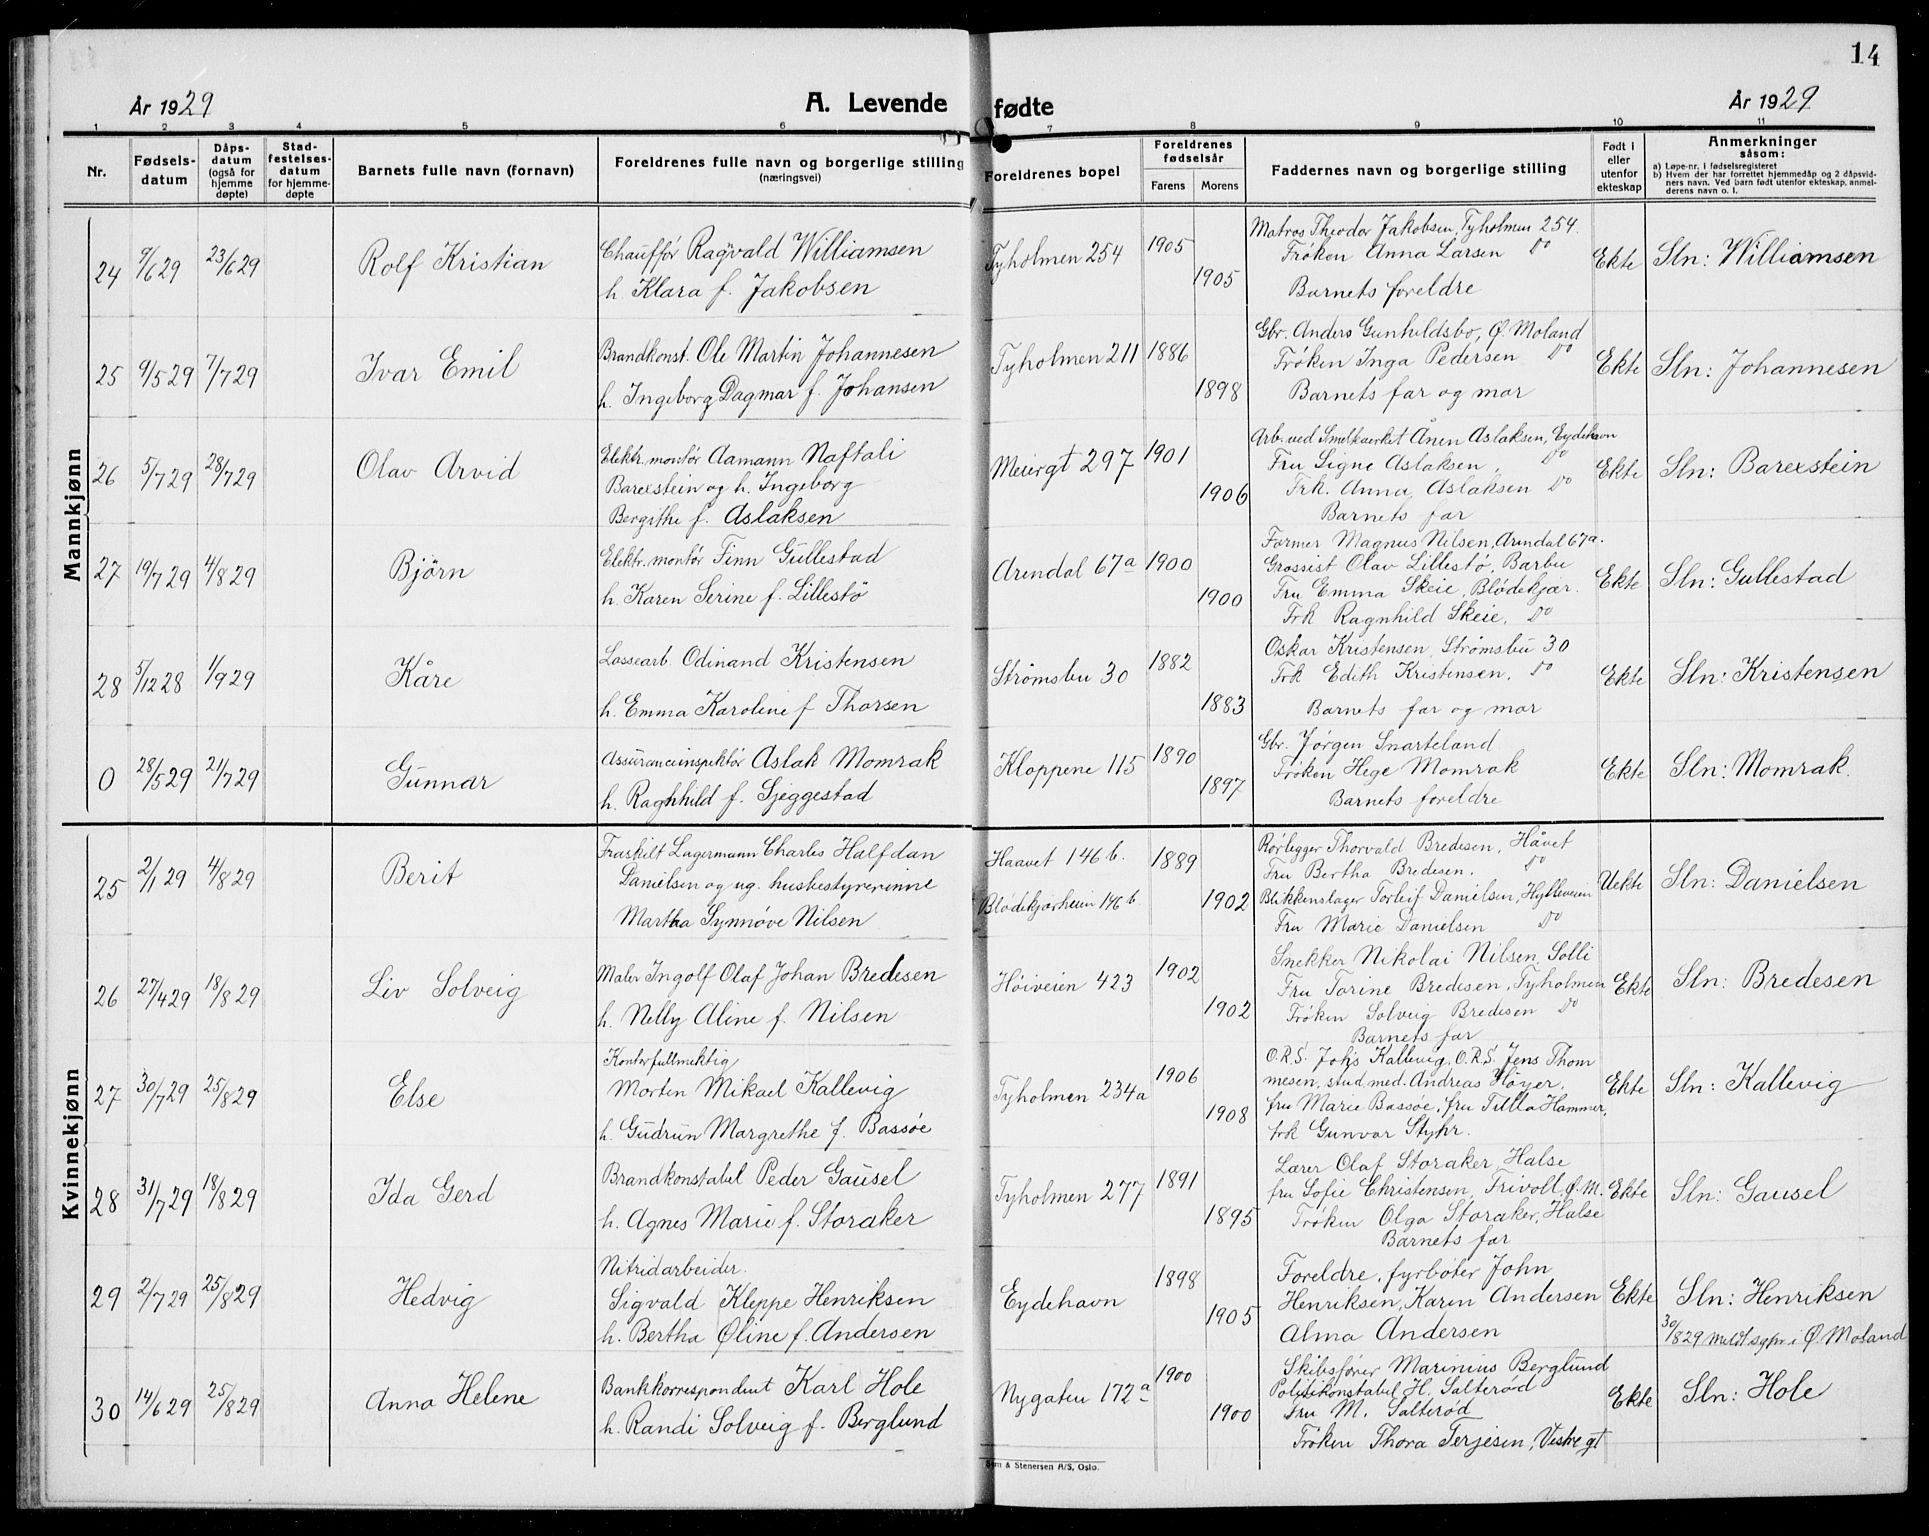 14
År 1929
A. Levende fødte
År 1929
1 2 3 4 5 6 7 8 9 10 11
Nr.
Fødsels-
datum
Dåps-
datum
(også for
hjemme
døpte)
Stad-
festelses-
datum
for hjemme-
døpte
Barnets fulle navn (fornavn)
Foreldrenes fulle navn og borgerlige stilling
(næringsvei)
Foreldrenes bopel
Foreldrenes
fødselsår
Farens Morens
Faddernes navn og borgerlige stilling
Født i
eller
utenfor
ekteskap
Anmerkninger
såsom:
a) Løpe-nr. i fødselsregisteret
b) Hvem der har forrettet hjemmedåp og 2 dåpsvid-
ners navn. Ved barn født utenfor ekteskap, anmel-
derens navn o. l.
Mannkjønn
24 9/6 29 23/6 29 Rolf Kristian
Chauffør Ragvald Williamsen
h. Klara f. Jakobsen
Tyholmen 254 1905 1905
Matros Theodor Jakobsen, Tyholmen 254.
Frøken Anna Larsen do
Barnets foreldre
Ekte Sln: Williamsen
25 9/5 29 7/7 29 Ivar Emil
Brandkonst. Ole Martin Johannesen
h. Ingeborg Dagmar f. Johansen
Tyholmen 211 1886 1898
Gbr. Anders Gunhildsbo, Ø. Moland
Frøken Inga Pedersen do
Barnets far og mor
Ekte Sln: Johannesen
26 5/7 29 28/7 29 Olav Arvid
Elektr. montør Aamann Naftali
Barexstein og h. Ingeborg
Bergithe f. Aslaksen
Meiergt 297 1901 1906
Arb. ved Smelteverket Ånen Aslaksen, Eydehavn
Fru Signe Aslaksen, do
Frk. Anna Aslaksen do
Barnets far
Ekte Sln: Barexstein
27 19/7 29 4/8 29 Bjørn
Elektr. montør Finn Gullestad
h. Karen Serine f. Lillestö
Arendal 67a 1900 1900
Former Magnus Nilsen, Arendal 67a.
Grossist Olav Lillestö, Barbu
Fru Emma Skeie, Blödekjær.
Frk Ragnhild Skeie, do
Ekte Sln: Gullestad
28 5/12 28 1/9 29 Kåre
Lossearb. Odinand Kristensen
h. Emma Karoline f Thorsen
Strømsbu 30 1882 1883
Oskar Kristensen, Strømsbu 30
Frk Edith Kristensen, do
Barnets far og mor
Ekte Sln: Kristensen
0 28/5 29 21/7 29 Gunnar
Assuranceinspektör Aslak Momrak
h. Raghhild f. Sjeggestad
Kloppene 115 1890 1897
Gbr. Jørgen Snarteland
Frøken Hege Momrak
Barnets foreldre
Ekte Sln: Momrak.
Kvinnekjønn
25 2/1 29 4/8 29 Berit
Fraskilt Lagermann Charles Halfdan
Danielsen og ug. husbestyrerinne
Martha Synnøve Nilsen
Haavet 146 b.
Blødekjærheien 146 b
1889 1902
Rørlegger Thorvald Bredesen, Håvet
Fru Bertha Bredesen. do
Blikkenslager Torleif Danielsen, Hylleveien
Fru Marie Danielsen do
Uekte Sln: Danielsen
26 27/4 29 18/8 29 Liv Solveig
Maler Ingolf Olaf Johan Bredesen
h. Nelly Aline f. Nilsen
Höiveien 423 1902 1902
Snekker Nikolai Nilsen, Solli
Fru Torine Bredesen, Tyholmen
Frøken Solveig Bredesen do
Barnets far
Ekte Sln: Bredesen
27 30/7 29 25/8 29 Else
Kontorfullmektig
Morten Mikael Kallevig
h. Gudrun Margrethe f. Bassöe
Tyholmen 234a 1906 1908
O.R.S. Johs Kallevig, O.R.S. Jens Thom
mesen, stud. med. Andreas Høyer,
fru Marie Bassøe, fru Tilla Hammer,
frk Gunvor Styhr.
Ekte Sln: Kallevig
28 31/7 29 18/8 29 Ida Gerd
Brandkonstabel Peder Gausel
h. Agnes Marie f. Storaker
Tyholmen 277 1891 1895
Lærer Olaf Storaker, Halse
fru Sofie Christensen, Trivoll, Ø. M.
Frøken Olga Storaker, Halse
Barnets far
Ekte Sln: Gausel
29 2/7 29 25/8 29 Hedvig
Nitridarbeider.
Sigvald Kleppe Henriksen
h. Bertha Øline f. Andersen
Eydehavn 1898 1905
Foreldre, fyrbøter John
Henriksen, Karen Andersen
Alma Andersen
Ekte Sln: Henriksen
30/8 29 meldt sgpr i Ø. Moland
30 14/6 29 25/8 29 Anna Helene
Bankkorrespondent Karl Hole
h. Randi Solveig f. Berglund
Nygaten 172a 1900 1900
Skibsfører Marinius Berglund
Politikonstabel H. Salterød
Fru M. Salterød
Frøken Thora Terjesen, Vestre gt
Ekte Sln: Hole
Sem & Stenersen A/S, Oslo.